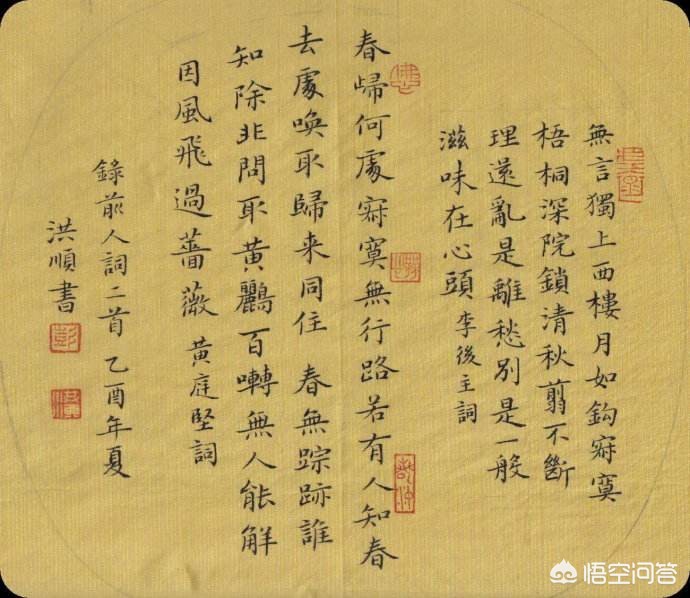 無言獨上西樓月如鈎寂寞
梧桐深院鎖清秋翦不斷
理還亂是離愁別是一般
滋味在心頭 李後主詞
春歸何處寂寞無行路若有人知春
去處喚取歸来同住 春無踪跡誰
知除非問取黄鸝百囀無人能解
因風飛過薔薇 黄庭堅詞
錄前人詞二首 乙酉年夏
洪順書
彭
悟空问答